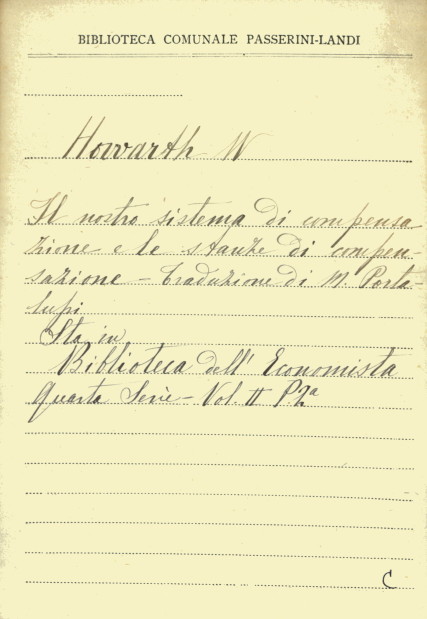 BIBLIOTECA COMUNALE PASSERINI-LANDI
Howarth W
Il nostro sistema di compensa
zione e le stanze di compen-
sazione - traduzione di M. Porta-
lupi
Sta in
Biblioteca dell' Economista
Quarta Serie - Vol. II P. 2ª
C